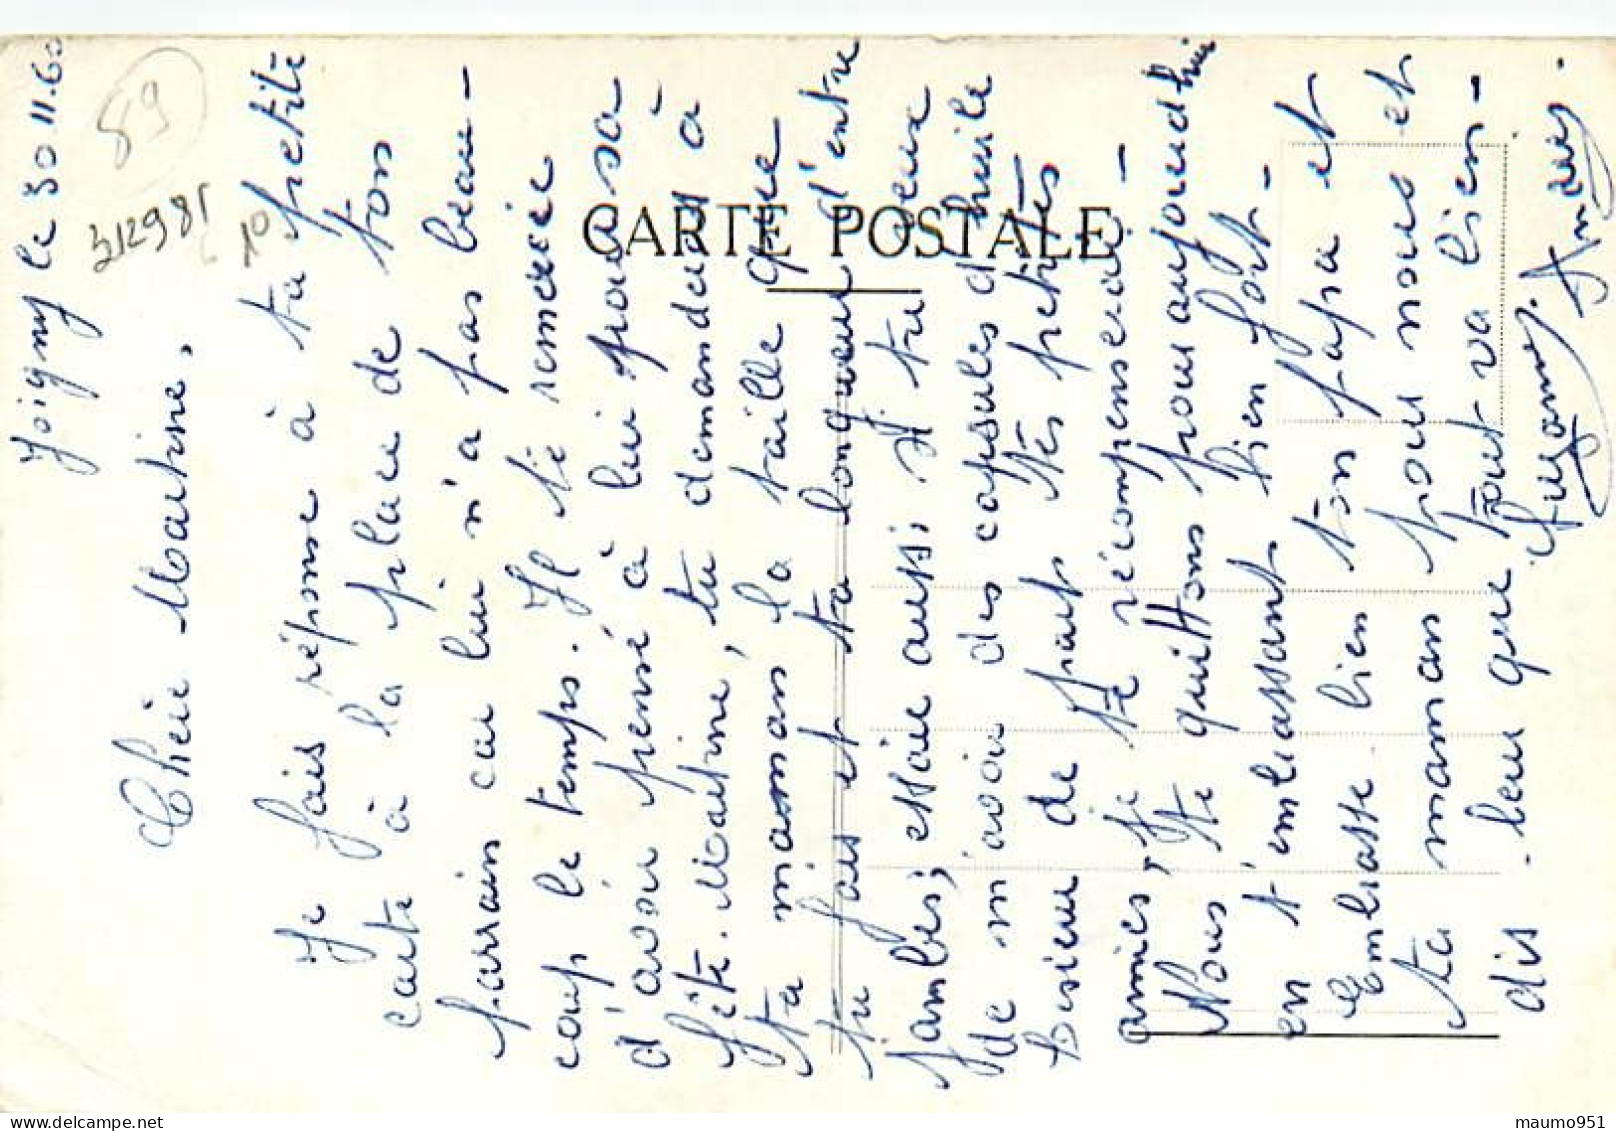 Joigny le 30.11.60
Chère Martine,
Je fais réponse à ta petite
carte à la place de ton
parrain car lui n'a pas beau-
coup le temps. Il te remercie
d'avoir pensé à lui pour sa
fête. Martine, tu demanderas à
ta maman la taille que
tu fais et ta longueur d'entre
jambes; essaie aussi si tu peux
de m'avoir des capsules d'huile
Lesieur de part tes petites
amies, je te récompenserai -
Nous te quittons pour aujourdhui
en t'embrassant bien fort -
Embrasse bien ton papa et
ta maman pour nous et
dis-leur que tout va bien -
Suzanne. André.
CARTE POSTALE
89
312981
10
maumo951